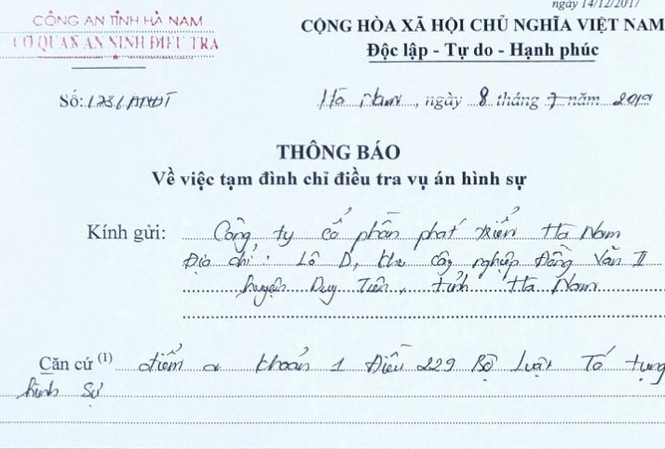 ngày 14/12/2017
CÔNG AN TỈNH HÀ NAM
CƠ QUAN AN NINH ĐIỀU TRA
CỘNG HÒA XÃ HỘI CHỦ NGHĨA VIỆT NAM
Độc lập - Tự do - Hạnh phúc
Số: 173/ANĐT
Hà Nam, ngày 8 tháng 7 năm 2019
THÔNG BÁO
Về việc tạm đình chỉ điều tra vụ án hình sự
Kính gửi: Công ty cổ phần phát triển Hà Nam
Địa chỉ: Lô D, khu công nghiệp Đồng Văn II
huyện Duy Tiên, tỉnh Hà Nam
Căn cứ (1) điểm a khoản 1 Điều 229 Bộ luật Tố tụng
hình sự